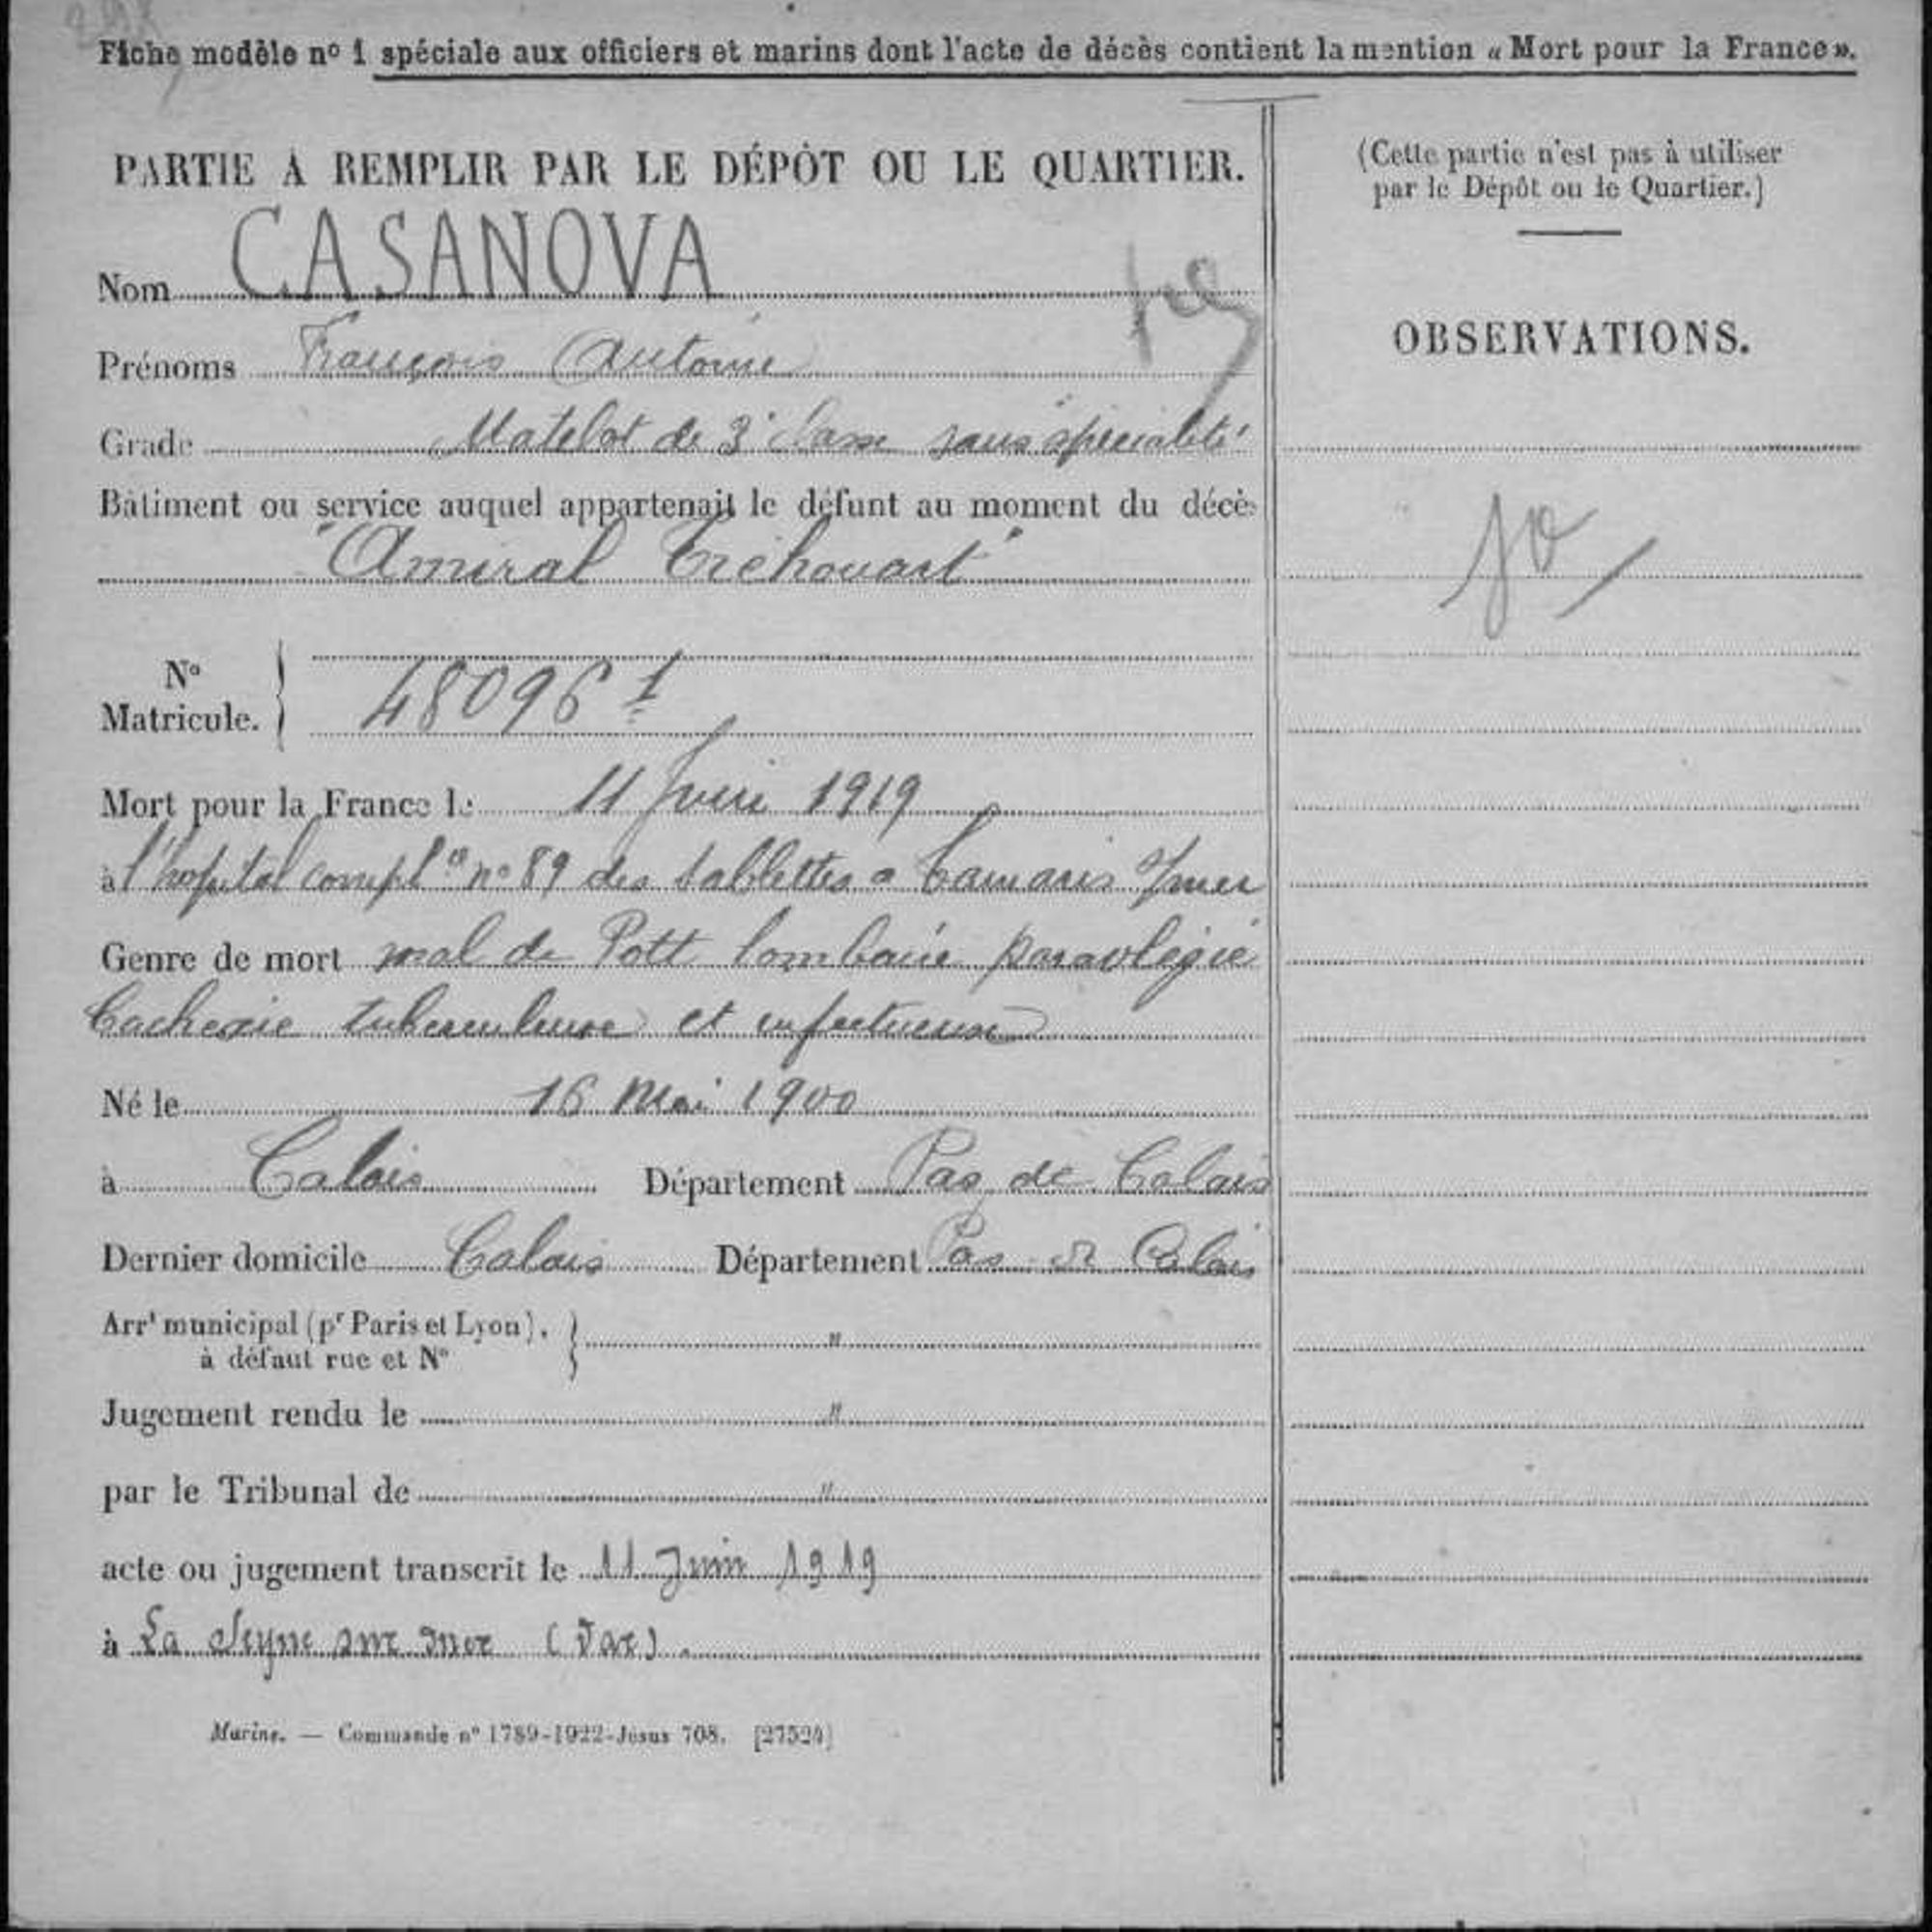 Fiche modèle nº 1 spéciale aux officiers et marins dont l'acte de décès contient la mention « Mort pour la France ».
PARTIE À REMPLIR PAR LE DÉPÔT OU LE QUARTIER.
Nom CASANOVA
Prénoms François Antoine
Grade Matelot de 3e classe sans spécialité
Bâtiment ou service auquel appartenait le défunt au moment du décès
"Amiral Tréhouart"
Nº
Matricule. 48096 1
Mort pour la France le 11 Juin 1919
à l'hopital complre nº 89 des tablettes à Tamaris s/mer
Genre de mort mal de Pott lombaire paraplégie
Cachexie tuberculeuse et infectueuse
Né le 16 Mai 1900
à Calais Département Pas de Calais
Dernier domicile Calais Département Pas de Calais
Arrt municipal (pr Paris et Lyon),
à défaut rue et Nº "
Jugement rendu le "
par le Tribunal de "
acte ou jugement transcrit le 11 Juin 1919
à La Seyne sur mer (Var).
Marine. — Commande nº 1789-1922-Jésus 708. [27524]
(Cette partie n'est pas à utiliser
par le Dépôt ou le Quartier.)
OBSERVATIONS.